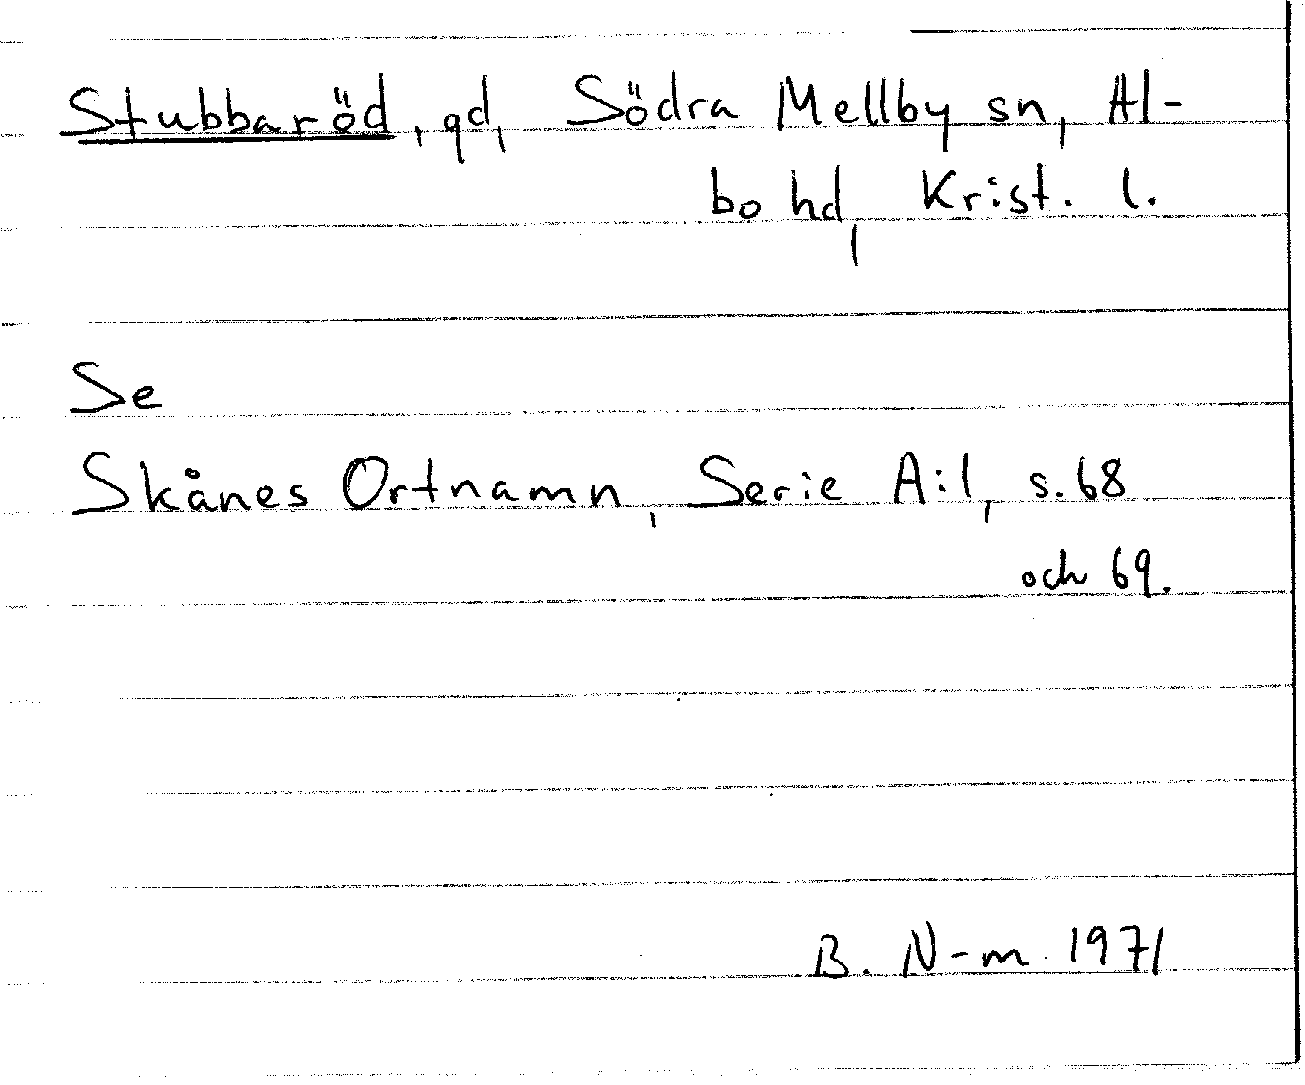 Stubbaröd, gd, Södra Mellby sn, Al-
bo hd, Krist. l.
Se
Skånes Ortnamn, Serie A:1, s. 68
och 69.
B. N-m 1971